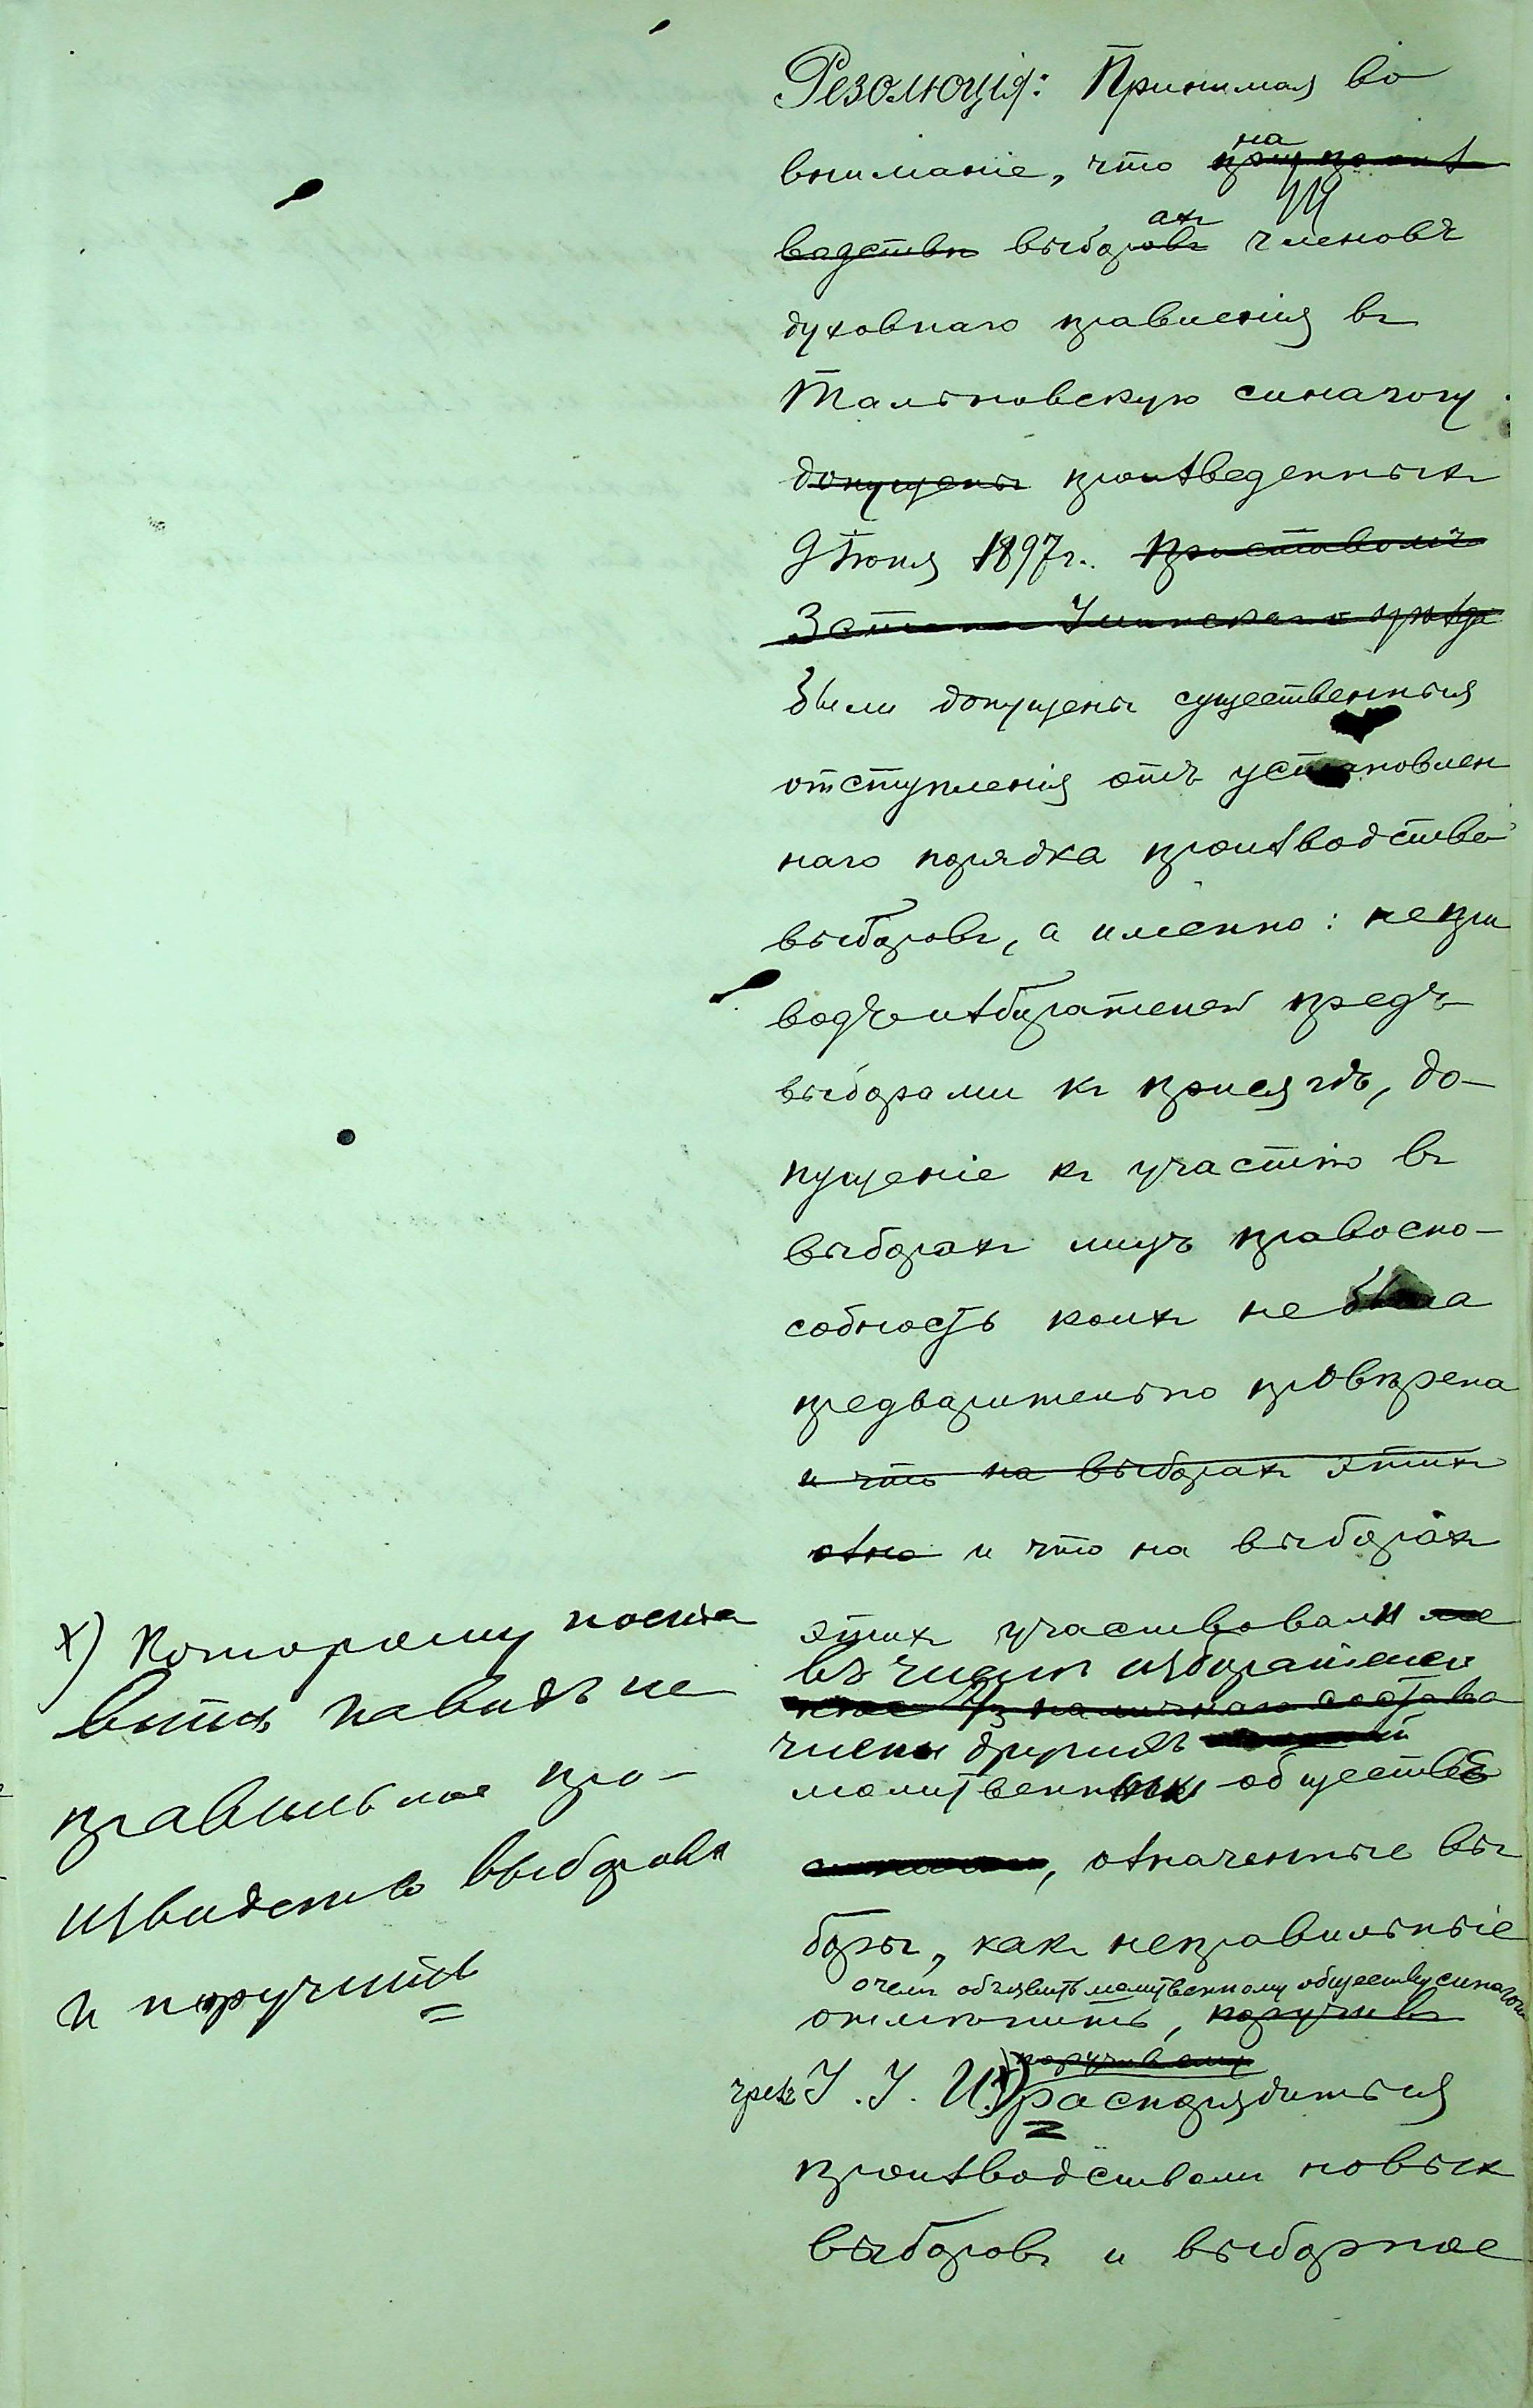 Резолюція: Принимая во
вниманіе, что на при произ
водствѣ выборовъ ахъ членовъ
духовнаго правленія въ
Тальновскую синагогу
допущены произведенныхъ
9 Іюня 1897 г. Приставомъ
3 стана Уманскаго уѣзда
были допущены существенныя
отступленія отъ установлен
наго порядка производства
выборовъ, а именно: непри
водъ избирателей предъ
выборами къ присягѣ, до-
пущеніе къ участію въ
выборахъ лицъ правоспо-
собность коихъ не была
предварительно провѣрена
и что на выборахъ этихъ
озна и что на выборахъ
этихъ участвовали не
въ числѣ избирателей
изъ наличнаго состава
члены другихъ
молитвенныхъ обществъ
, означенные вы
боры, какъ неправильные
о чемъ объявить молитвенному обществу синагоги
отмѣнить, поручивъ
поручивъ ему
чрезъ У. У. И. х) распорядиться
производствомъ новыхъ
выборовъ и выборное
х) Которому поста
вить на видъ не
правильное про-
изводство выборовъ
и поручить